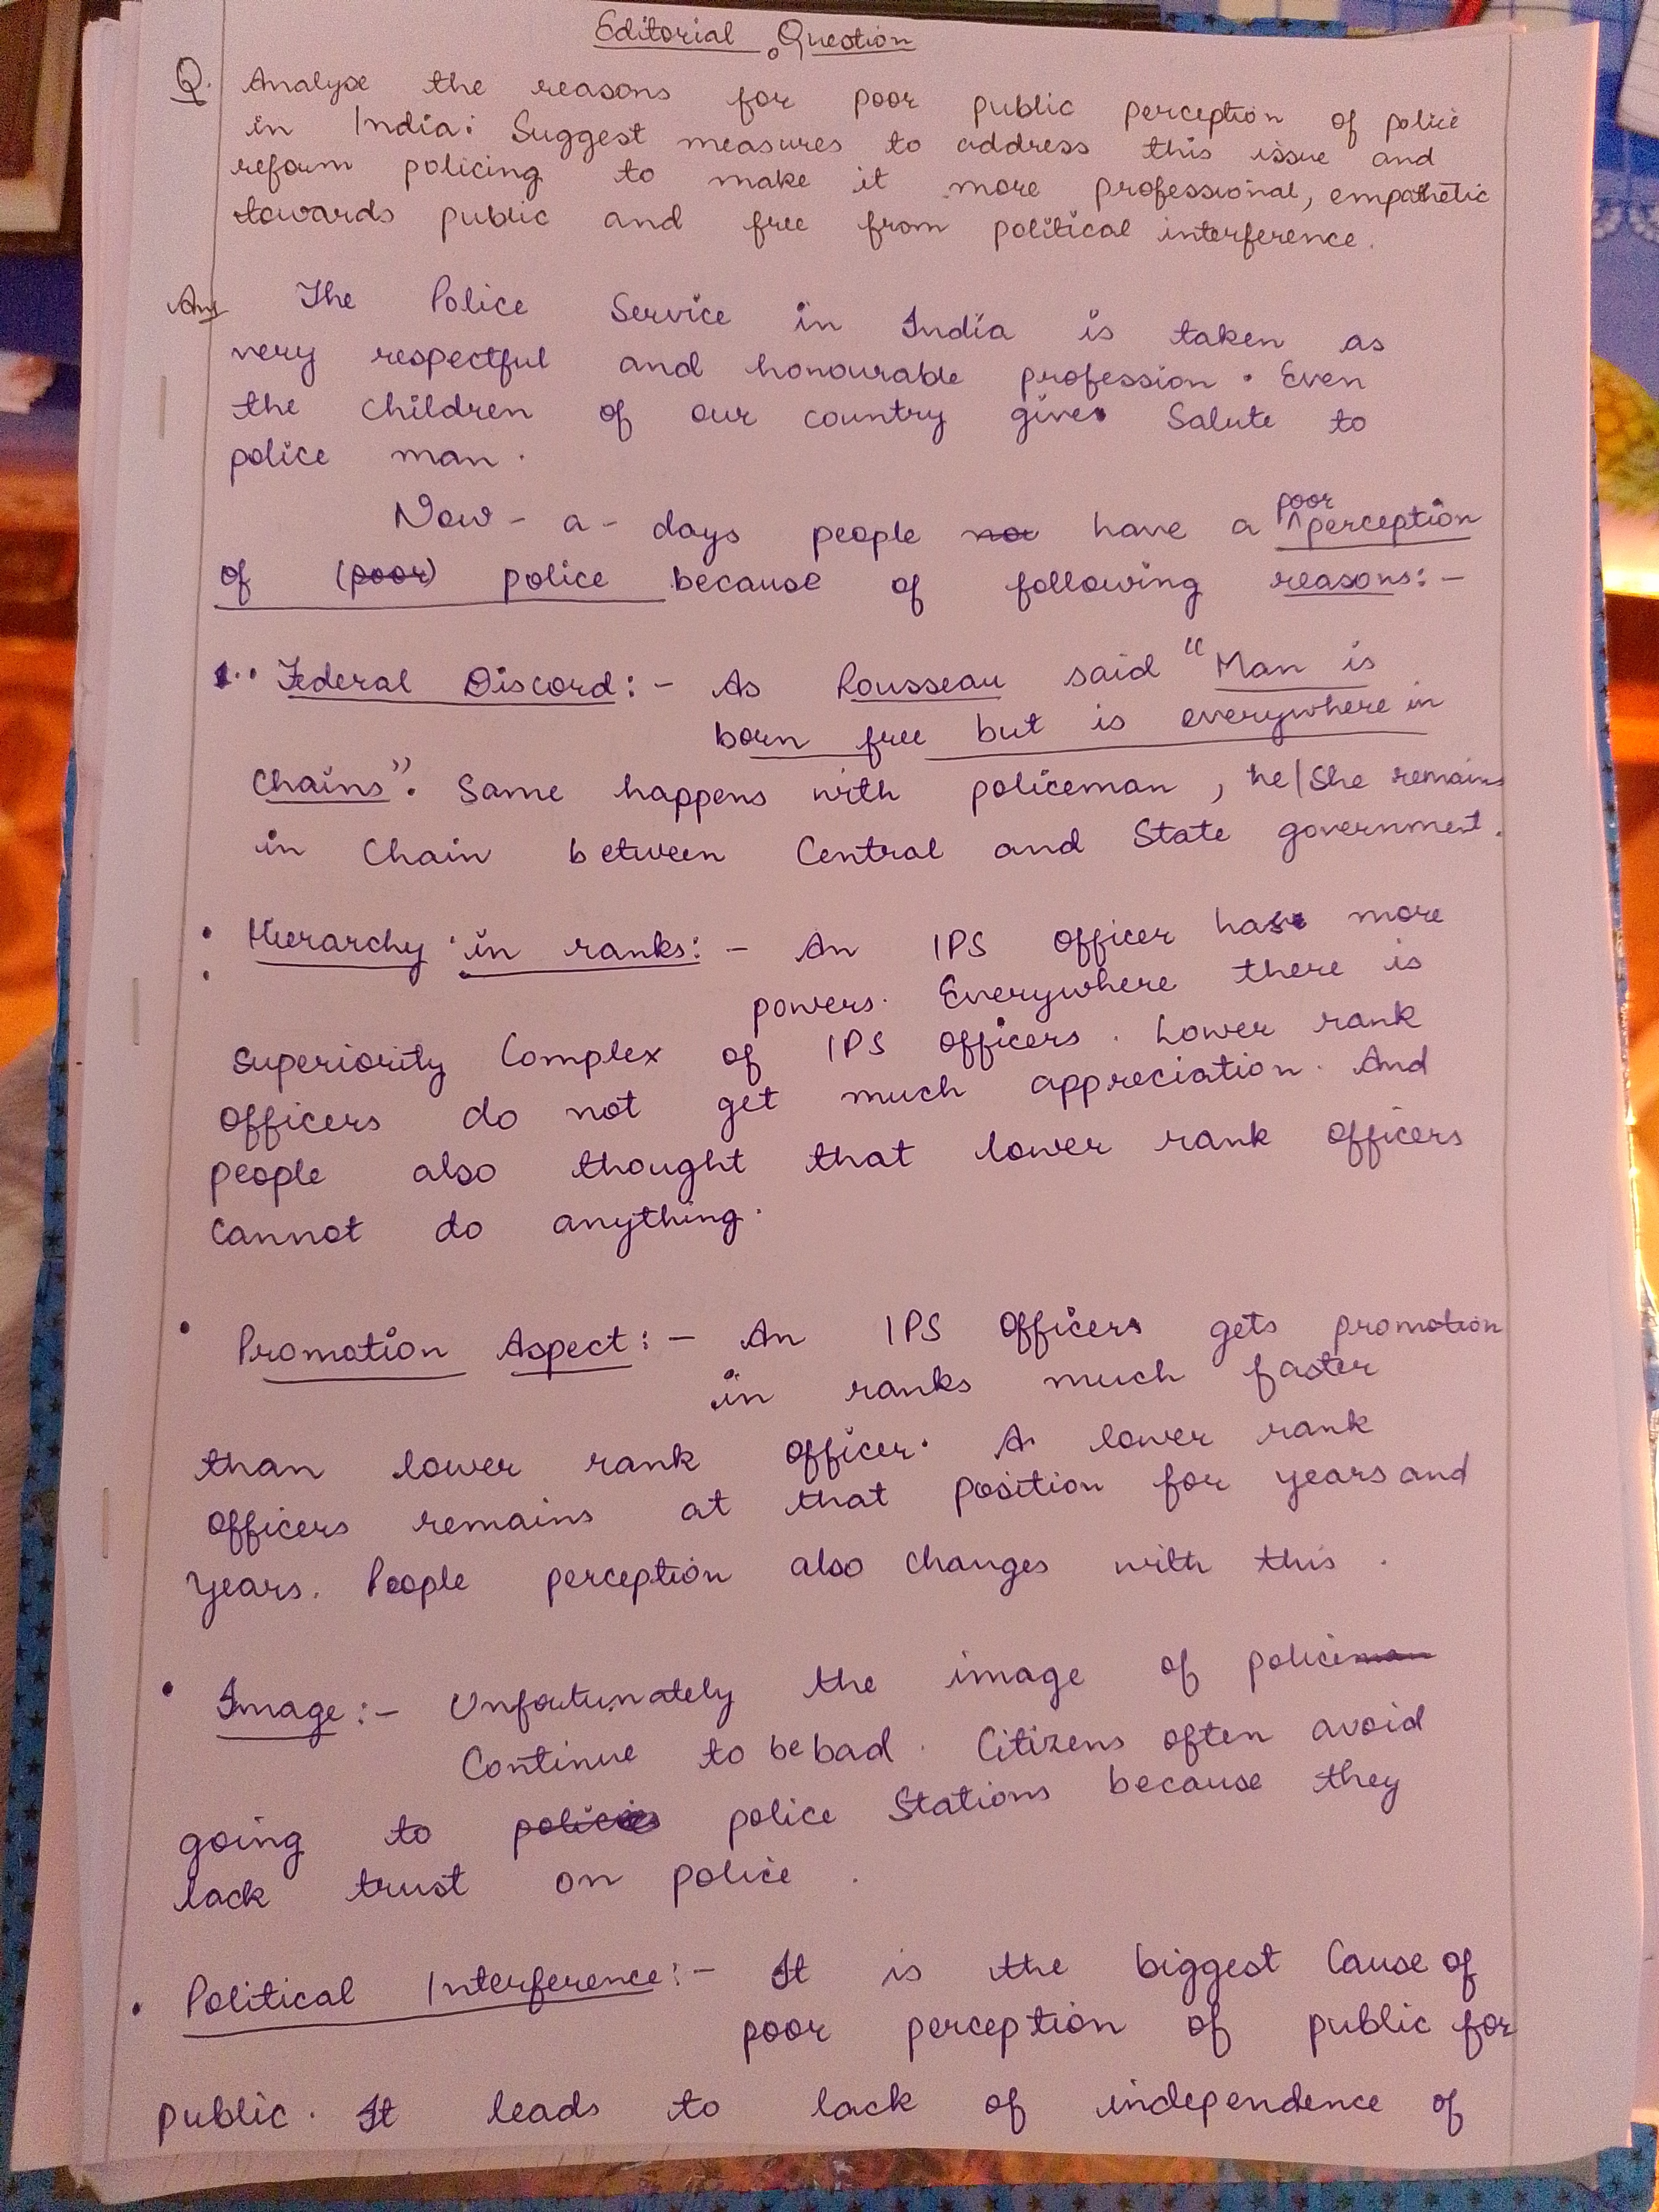 Editorial Question
Q. Analyse the reasons for poor public perception of police
in India. Suggest measures to address this issue and
reform policing to make it more professional, empathetic
towards public and free from political interference.
Ans The Police Service in India is taken as
very respectful and honourable profession. Even
the children of our country gives Salute to
police man.
Now-a-days people not have a poor perception
of (poor) police because of following reasons:-
1. Federal Discord:- As Rousseau said "Man is
born free but is everywhere in
Chains". Same happens with policeman, he/she remains
in Chain between Central and State government.
• Hierarchy in ranks:- An IPS officer has more
powers. Everywhere there is
Superiority Complex of IPS officers. Lower rank
officers do not get much appreciation. And
people also thought that lower rank officers
cannot do anything.
• Promotion Aspect:- An IPS officers gets promotion
in ranks much faster
than lower rank officer. A lower rank
officers remains at that position for years and
years. People perception also changes with this.
• Image:- Unfortunately the image of policeman
Continue to be bad. Citizens often avoid
going to policies police Stations because they
lack trust on police.
• Political Interference:- It is the biggest Cause of
poor perception of public for
public. It leads to lack of independence of